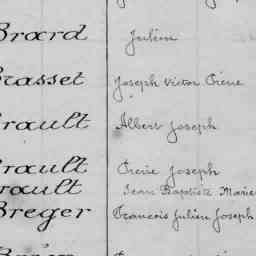 Broard Julien
Brasset Joseph Victor Pierre
Brault Albert Joseph
Brault Pierre Joseph
Brault Jean Baptiste Marie
Breger Francois Julien Joseph